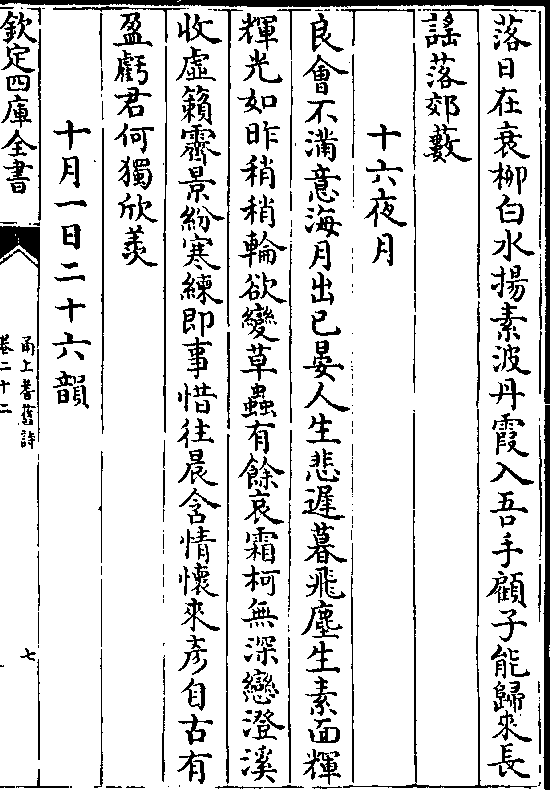 落日在衰柳白水揚素波丹霞入吾手顧子能歸來長
謡落郊藪
十六夜月
良會不滿意海月出已晏人生悲遲暮飛塵生素面輝
輝光如昨稍稍輪欲變草蟲有餘哀霜柯無深戀澄溪
收虛籟霽景紛寒練即事惜往晨含情懷來彦自古有
盈虧君何獨欣羨
十月一日二十六韻
欽定四庫全書
甬上耆舊詩
卷二十二
七